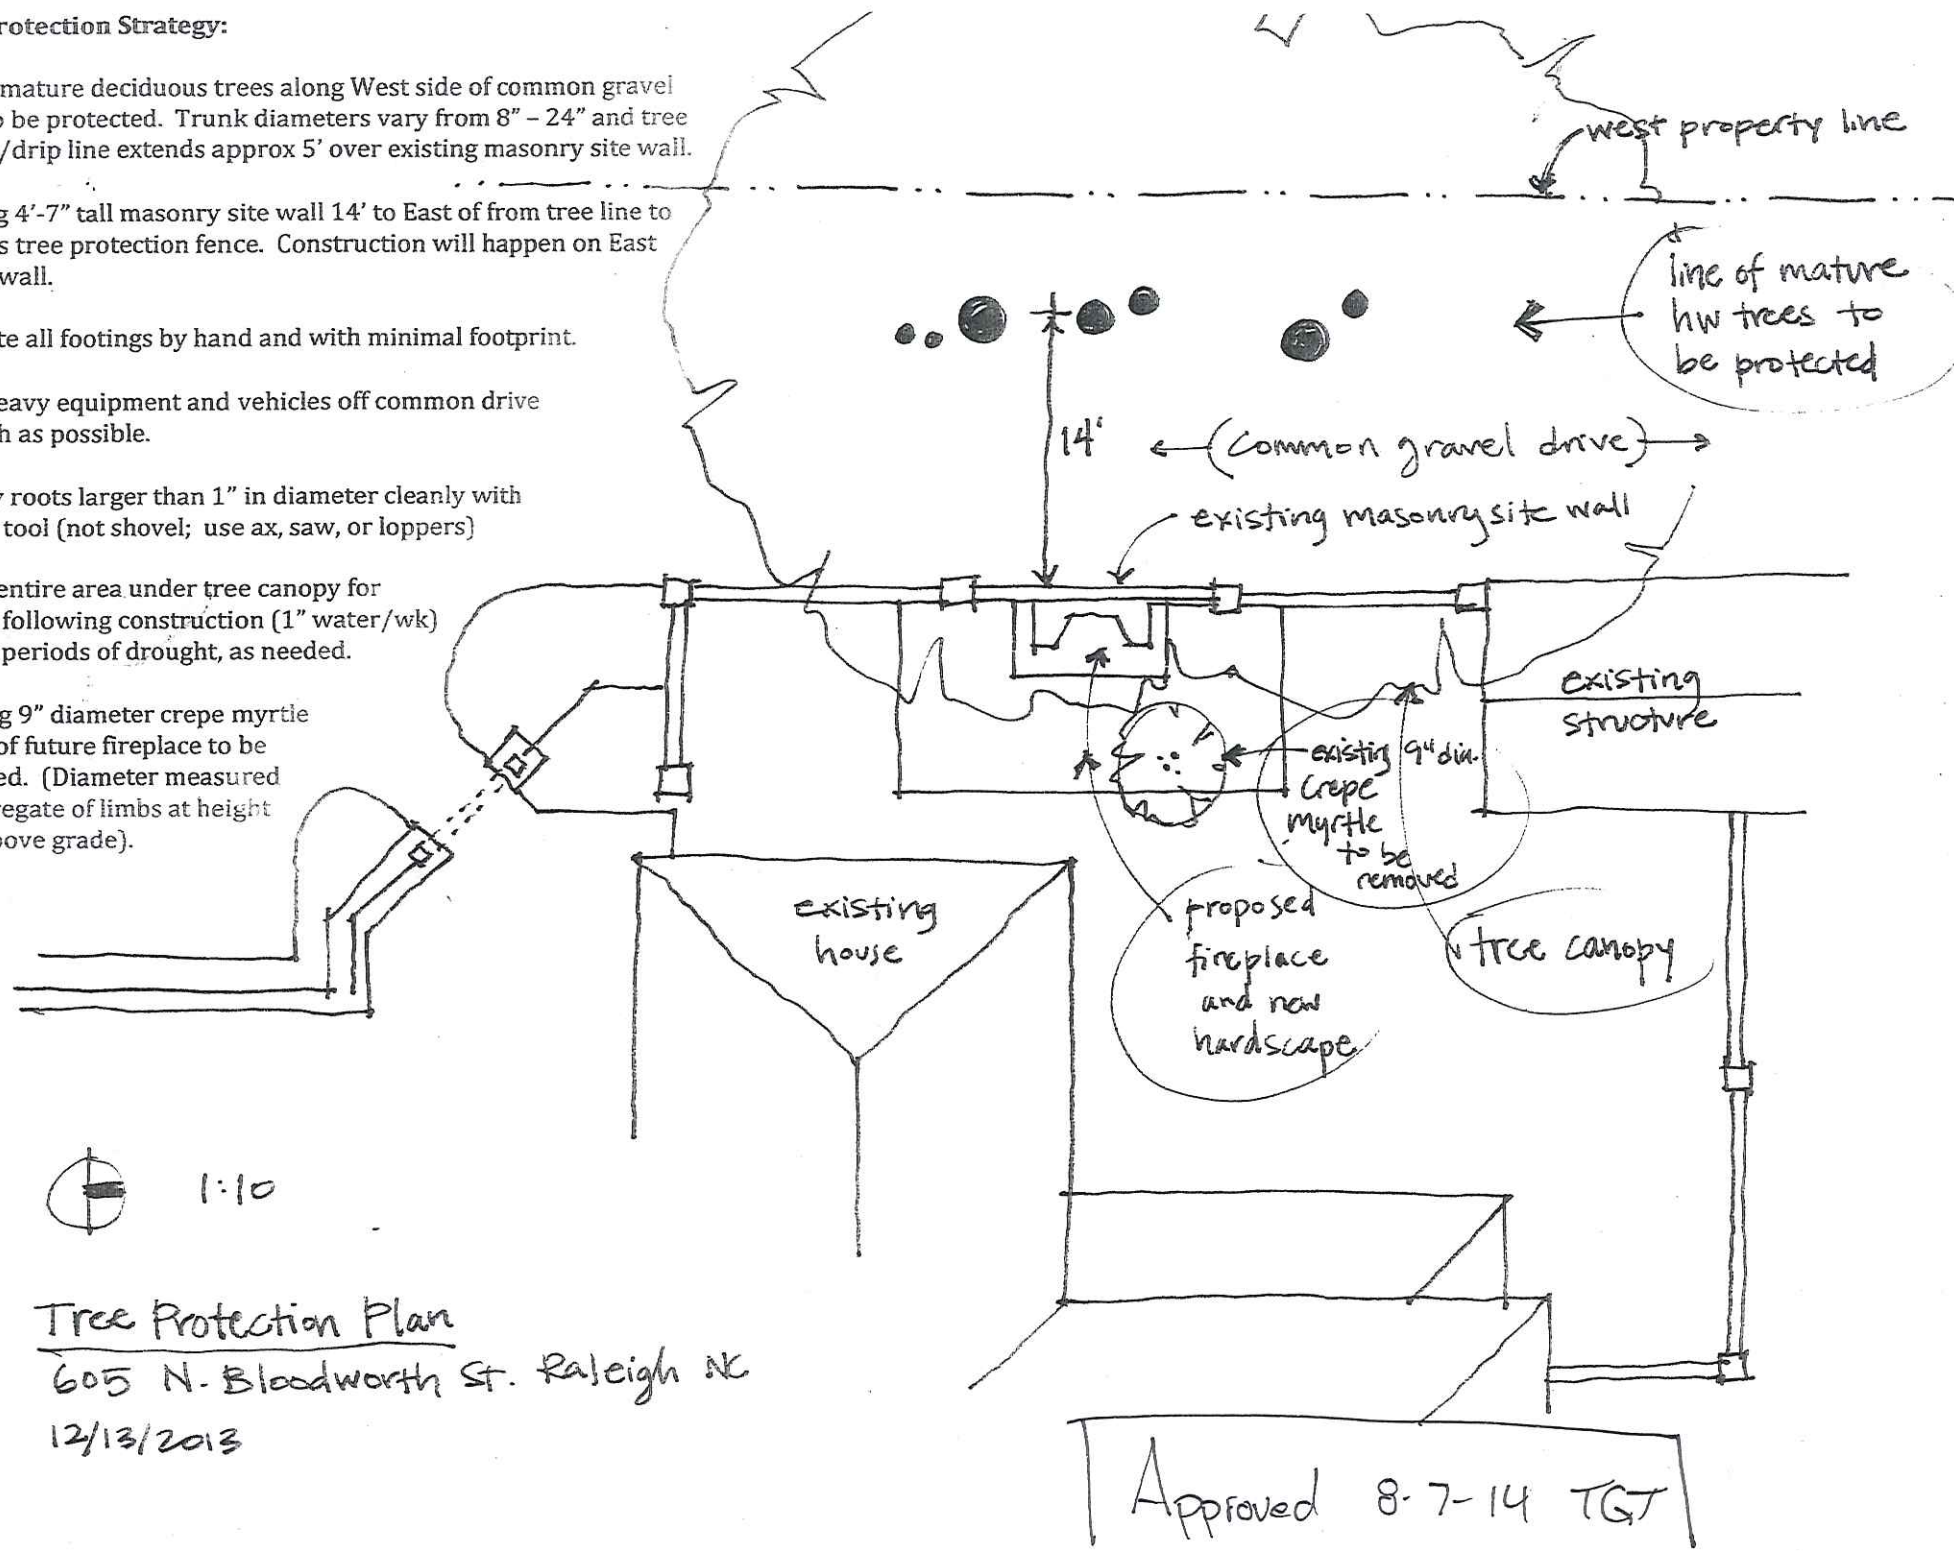 rotection Strategy:
mature deciduous trees along West side of common gravel
be protected. Trunk diameters vary from 8” – 24” and tree
/drip line extends approx 5’ over existing masonry site wall.
g 4’-7” tall masonry site wall 14’ to East of from tree line to
s tree protection fence. Construction will happen on East
wall.
te all footings by hand and with minimal footprint.
eavy equipment and vehicles off common drive
h as possible.
roots larger than 1” in diameter cleanly with
tool (not shovel; use ax, saw, or loppers)
entire area under tree canopy for
following construction (1” water/wk)
periods of drought, as needed.
g 9” diameter crepe myrtle
of future fireplace to be
ed. (Diameter measured
regate of limbs at height
ove grade).
west property line
line of mature
hw trees to
be protected
14'
(common gravel drive)
existing masonry site wall
existing
structure
existing 9" dia.
crepe
myrtle
to be
removed
existing
house
proposed
fireplace
and new
hardscape
tree canopy
1:10
Tree Protection Plan
605 N. Bloodworth St. Raleigh NC
12/13/2013
Approved 8-7-14 TGT